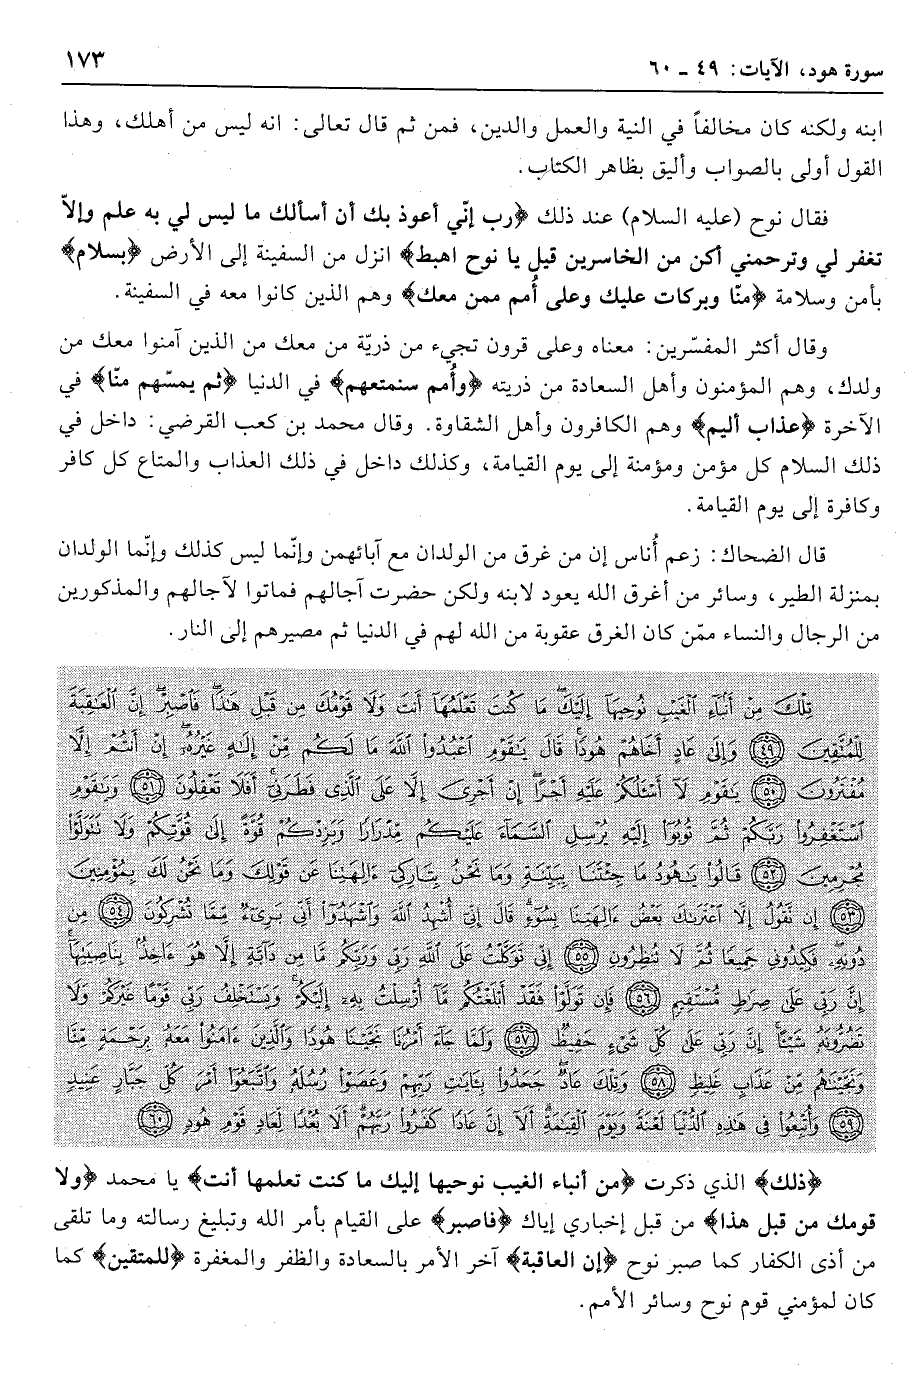 سورة هود، الآيات: ٤٩ ـ ٦٠
١٧٣
ابنه ولكنه كان مخالفاً في النية والعمل والدين، فمن ثم قال تعالى: انه ليس من أهلك، وهذا
القول أولى بالصواب وأليق بظاهر الكتاب.
فقال نوح (عليه السلام) عند ذلك ﴿رب إنّي أعوذ بك أن أسألك ما ليس لي به علم وإلاّ
تغفر لي وترحمني أكن من الخاسرين قيل يا نوح اهبط﴾ انزل من السفينة إلى الأرض ﴿بسلام﴾
بأمن وسلامة ﴿منّا وبركات عليك وعلى أُمم ممن معك﴾ وهم الذين كانوا معه في السفينة.
وقال أكثر المفسّرين: معناه وعلى قرون تجيء من ذريّة من معك من الذين آمنوا معك من
ولدك، وهم المؤمنون وأهل السعادة من ذريته ﴿وأُمم سنمتعهم﴾ في الدنيا ﴿ثم يمسّهم منّا﴾ في
الآخرة ﴿عذاب أليم﴾ وهم الكافرون وأهل الشقاوة. وقال محمد بن كعب القرضي: داخل في
ذلك السلام كل مؤمن ومؤمنة إلى يوم القيامة، وكذلك داخل في ذلك العذاب والمتاع كل كافر
وكافرة إلى يوم القيامة.
قال الضحاك: زعم أُناس إن من غرق من الولدان مع آبائهمن وإنّما ليس كذلك وإنّما الولدان
بمنزلة الطير، وسائر من أغرق الله يعود لابنه ولكن حضرت آجالهم فماتوا لآجالهم والمذكورين
من الرجال والنساء ممّن كان الغرق عقوبة من الله لهم في الدنيا ثم مصيرهم إلى النار.
تِلْكَ مِنْ أَنۢبَآءِ ٱلْغَيْبِ نُوحِيهَآ إِلَيْكَ ۖ مَا كُنتَ تَعْلَمُهَآ أَنتَ وَلَا قَوْمُكَ مِن قَبْلِ هَٰذَا ۖ فَٱصْبِرْ ۖ إِنَّ ٱلْعَٰقِبَةَ
لِلْمُتَّقِينَ ﴿٤٩﴾ وَإِلَىٰ عَادٍ أَخَاهُمْ هُودًا ۚ قَالَ يَٰقَوْمِ ٱعْبُدُوا۟ ٱللَّهَ مَا لَكُم مِّنْ إِلَٰهٍ غَيْرُهُۥٓ ۖ إِنْ أَنتُمْ إِلَّا
مُفْتَرُونَ ﴿٥٠﴾ يَٰقَوْمِ لَآ أَسْـَٔلُكُمْ عَلَيْهِ أَجْرًا ۖ إِنْ أَجْرِىَ إِلَّا عَلَى ٱلَّذِى فَطَرَنِىٓ ۚ أَفَلَا تَعْقِلُونَ ﴿٥١﴾ وَيَٰقَوْمِ
ٱسْتَغْفِرُوا۟ رَبَّكُمْ ثُمَّ تُوبُوٓا۟ إِلَيْهِ يُرْسِلِ ٱلسَّمَآءَ عَلَيْكُم مِّدْرَارًا وَيَزِدْكُمْ قُوَّةً إِلَىٰ قُوَّتِكُمْ وَلَا تَتَوَلَّوْا۟
مُجْرِمِينَ ﴿٥٢﴾ قَالُوا۟ يَٰهُودُ مَا جِئْتَنَا بِبَيِّنَةٍ وَمَا نَحْنُ بِتَارِكِىٓ ءَالِهَتِنَا عَن قَوْلِكَ وَمَا نَحْنُ لَكَ بِمُؤْمِنِينَ
﴿٥٣﴾ إِن نَّقُولُ إِلَّا ٱعْتَرَىٰكَ بَعْضُ ءَالِهَتِنَا بِسُوٓءٍ ۗ قَالَ إِنِّىٓ أُشْهِدُ ٱللَّهَ وَٱشْهَدُوٓا۟ أَنِّى بَرِىٓءٌ مِّمَّا تُشْرِكُونَ ﴿٥٤﴾ مِن
دُونِهِۦ ۖ فَكِيدُونِى جَمِيعًا ثُمَّ لَا تُنظِرُونِ ﴿٥٥﴾ إِنِّى تَوَكَّلْتُ عَلَى ٱللَّهِ رَبِّى وَرَبِّكُم ۚ مَّا مِن دَآبَّةٍ إِلَّا هُوَ ءَاخِذٌۢ بِنَاصِيَتِهَآ ۚ
إِنَّ رَبِّى عَلَىٰ صِرَٰطٍ مُّسْتَقِيمٍ ﴿٥٦﴾ فَإِن تَوَلَّوْا۟ فَقَدْ أَبْلَغْتُكُم مَّآ أُرْسِلْتُ بِهِۦٓ إِلَيْكُمْ ۚ وَيَسْتَخْلِفُ رَبِّى قَوْمًا غَيْرَكُمْ وَلَا
تَضُرُّونَهُۥ شَيْـًٔا ۚ إِنَّ رَبِّى عَلَىٰ كُلِّ شَىْءٍ حَفِيظٌ ﴿٥٧﴾ وَلَمَّا جَآءَ أَمْرُنَا نَجَّيْنَا هُودًا وَٱلَّذِينَ ءَامَنُوا۟ مَعَهُۥ بِرَحْمَةٍ مِّنَّا
وَنَجَّيْنَٰهُم مِّنْ عَذَابٍ غَلِيظٍ ﴿٥٨﴾ وَتِلْكَ عَادٌ ۖ جَحَدُوا۟ بِـَٔايَٰتِ رَبِّهِمْ وَعَصَوْا۟ رُسُلَهُۥ وَٱتَّبَعُوٓا۟ أَمْرَ كُلِّ جَبَّارٍ عَنِيدٍ
﴿٥٩﴾ وَأُتْبِعُوا۟ فِى هَٰذِهِ ٱلدُّنْيَا لَعْنَةً وَيَوْمَ ٱلْقِيَٰمَةِ ۗ أَلَآ إِنَّ عَادًا كَفَرُوا۟ رَبَّهُمْ ۗ أَلَا بُعْدًا لِّعَادٍ قَوْمِ هُودٍ ﴿٦٠﴾
﴿ذلك﴾ الذي ذكرت ﴿من أنباء الغيب نوحيها إليك ما كنت تعلمها أنت﴾ يا محمد ﴿ولا
قومك من قبل هذا﴾ من قبل إخباري إياك ﴿فاصبر﴾ على القيام بأمر الله وتبليغ رسالته وما تلقى
من أذى الكفار كما صبر نوح ﴿إن العاقبة﴾ آخر الأمر بالسعادة والظفر والمغفرة ﴿للمتقين﴾ كما
كان لمؤمني قوم نوح وسائر الأمم.